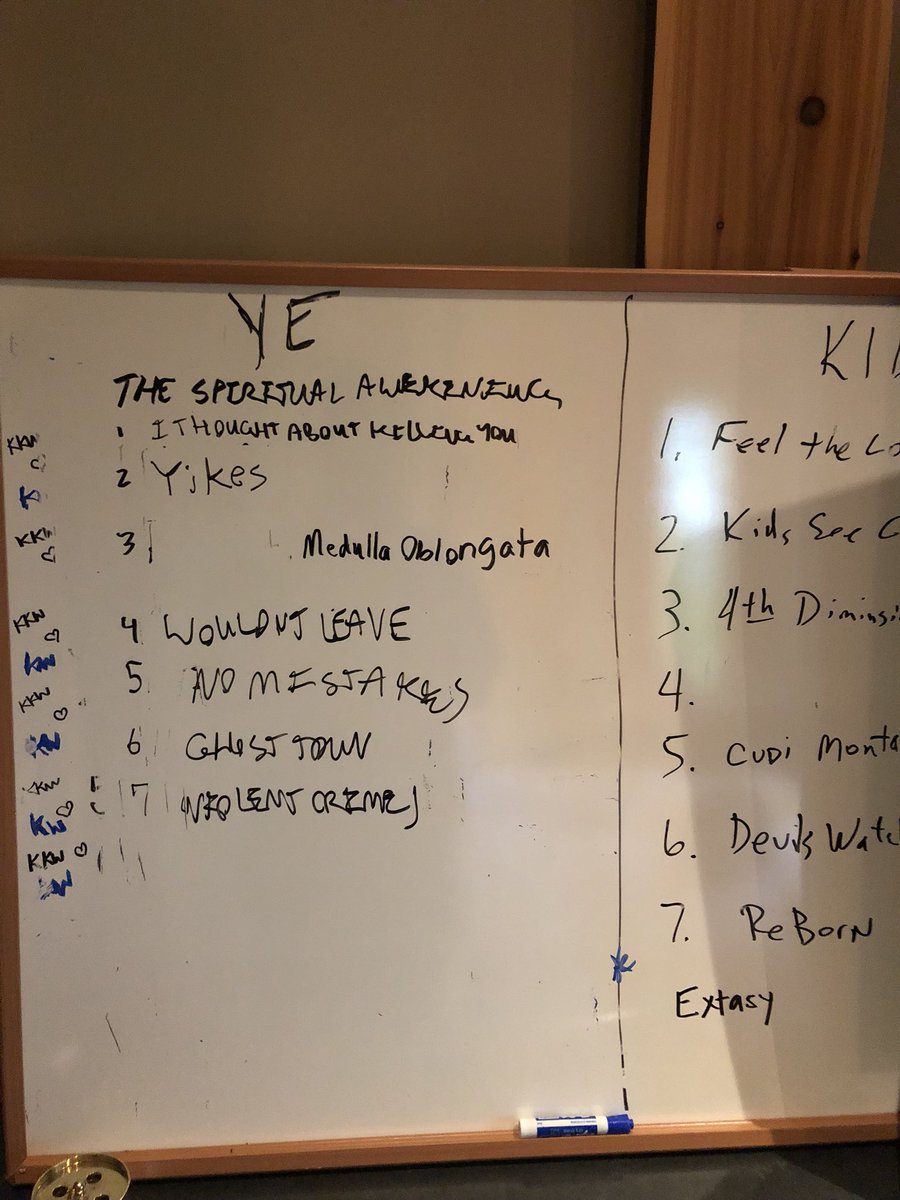 YE
THE SPIRITUAL AWEKENING
1 I THOUGHT ABOUT KILLING YOU
2 Yikes
3 Medulla Oblongata
4 WOULDNT LEAVE
5 NO MISTAKES
6 GHOST TOWN
7 VIOLENT CRIMES
KKW
KKW
KKW
KW
KKW
KW
KKW
KW
KKW
KW
KI
1. Feel the Lo
2. Kids See G
3. 4th Diminsi
4.
5. CUDI Monta
6. Devils Watc
7. ReBorn
Extasy